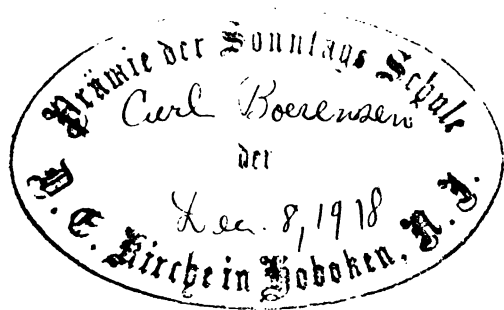 Prämie der Sonntags Schule
Carl Boerensen
der
Dec. 8, 1918
D. E. Kirche in Hoboken, N. J.